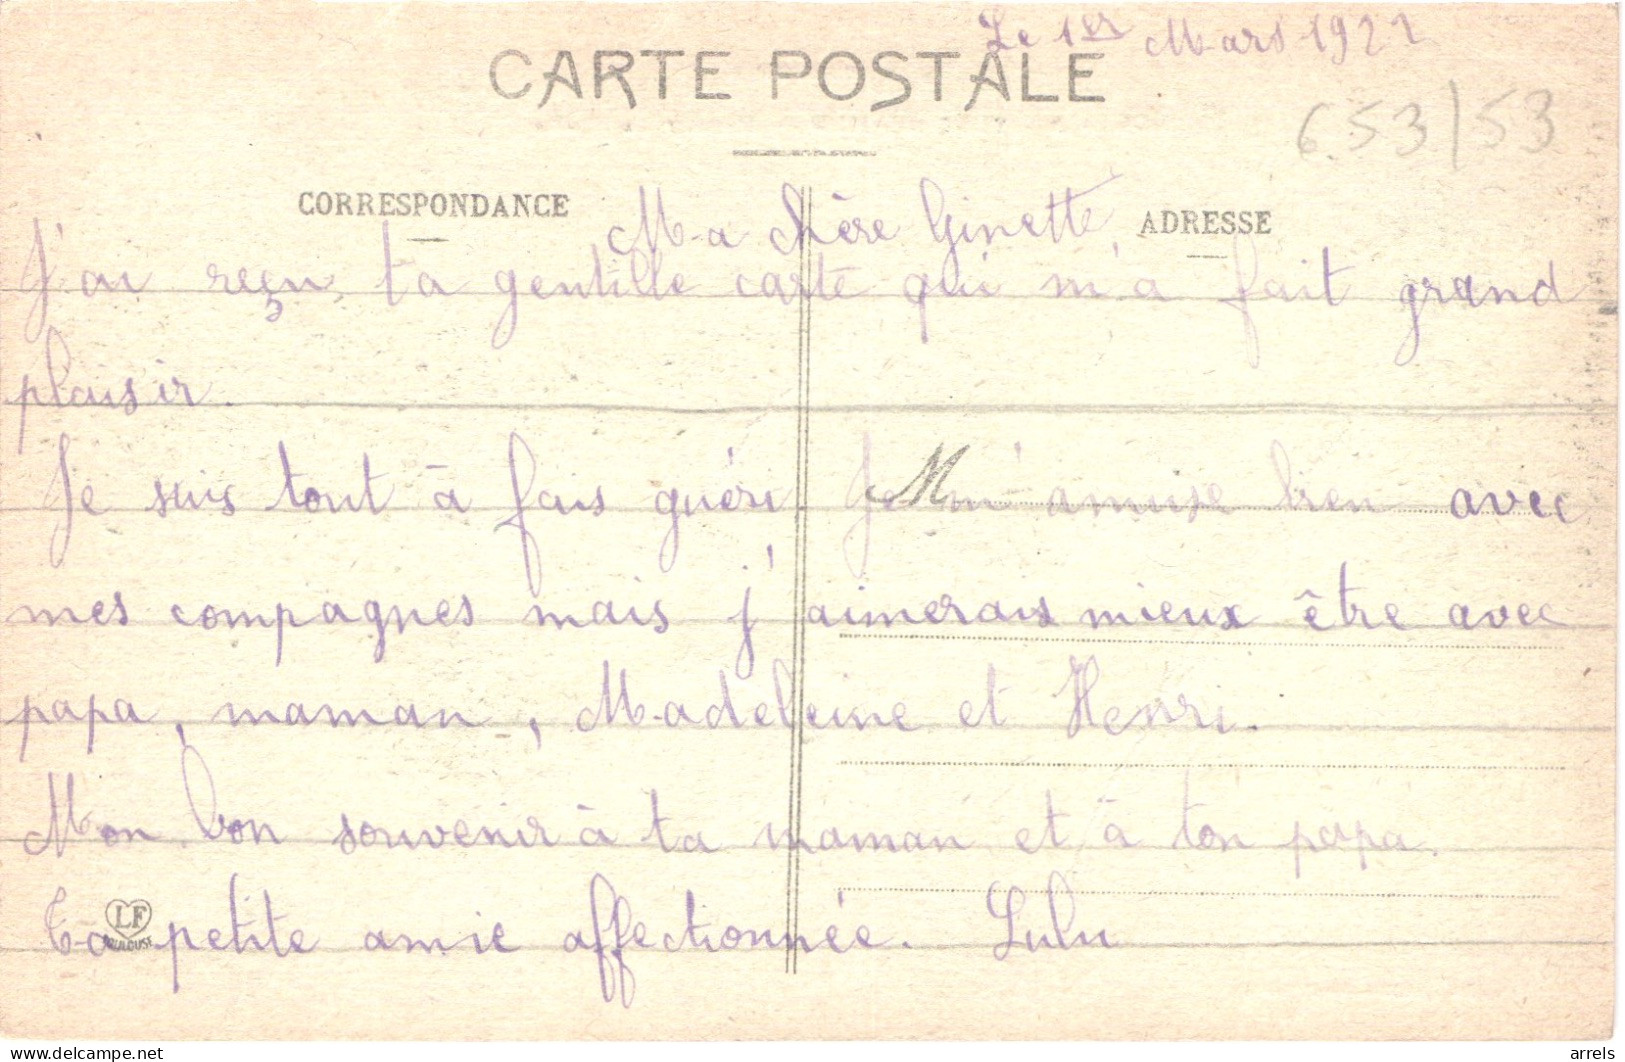 Le 1er Mars 1922
CARTE POSTALE
6.53/53
CORRESPONDANCE
ADRESSE
Ma chère Ginette,
J'ai reçu ta gentille carte qui m'a fait grand
plaisir.
Je suis tout à fais guéri. Je m'amuse bien avec
M
mes compagnes mais j'aimerais mieux être avec
papa, maman, Madeleine et Henri.
Mon bon souvenir à ta maman et à ton papa.
Ta petite amie affectionnée. Lulu
LF
TOULOUSE
delcampe.net
arrels